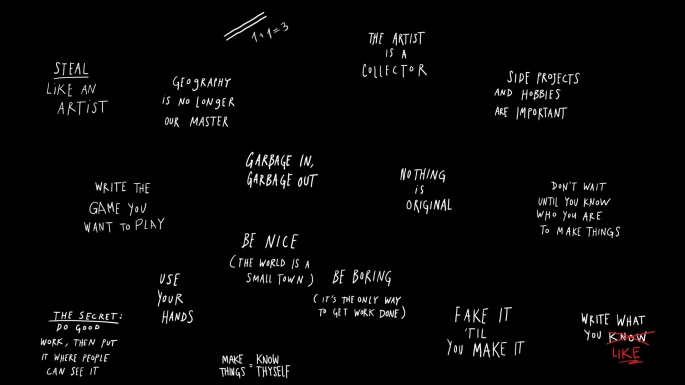 1+1=3
THE ARTIST
IS A
COLLECTOR
STEAL
LIKE AN
ARTIST
GEOGRAPHY
IS NO LONGER
OUR MASTER
SIDE PROJECTS
AND HOBBIES
ARE IMPORTANT
GARBAGE IN,
GARBAGE OUT
NOTHING
IS
ORIGINAL
WRITE THE
GAME YOU
WANT TO PLAY
DON'T WAIT
UNTIL YOU KNOW
WHO YOU ARE
TO MAKE THINGS
BE NICE
(THE WORLD IS A
SMALL TOWN)
USE
YOUR
HANDS
BE BORING
(IT'S THE ONLY WAY
TO GET WORK DONE)
THE SECRET:
DO GOOD
WORK, THEN PUT
IT WHERE PEOPLE
CAN SEE IT
MAKE = KNOW
THINGS THYSELF
FAKE IT
'TIL
YOU MAKE IT
WRITE WHAT
YOU KNOW
LIKE